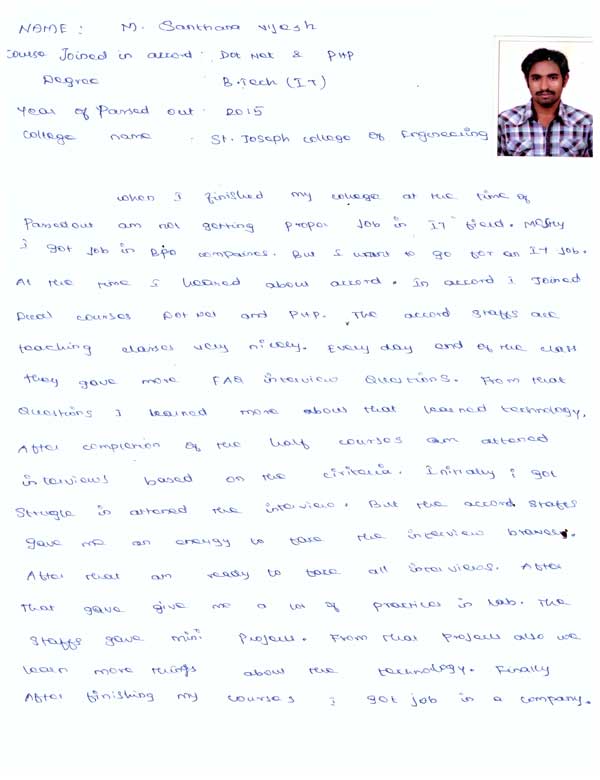 NAME : M. Santhana Vijesh
Course Joined in accord : Dot Net & PHP
Degree B.Tech (IT)
Year of Passed out : 2015
College name : St. Joseph College of Engineering
when I finished my college at the time of
Passedout am not getting propor Job in IT field. Mostly
i got Job in Bpo compaines. But I want to go for an IT Job.
At the time I heared about accord. In accord i Joined
courses Dot Net and PHP. The accord staffs are
teaching classes very nicely. Every day end of the class
they gave more FAQ interview Questions. From that
Questions I learned more about that learned technology.
After completion of the half courses am attened
interviews based on the citiria. Initially i got
Strugle in attened the interview. But the accord staffs
gave me an energy to face the interview bravely.
After that am ready to face all interviews. After
That gave give me a lot of practices in lab. The
staffs gave mini Projects. From that Projects also we
learn more things about the technology. Finally
After finishing my courses i got job in a company.